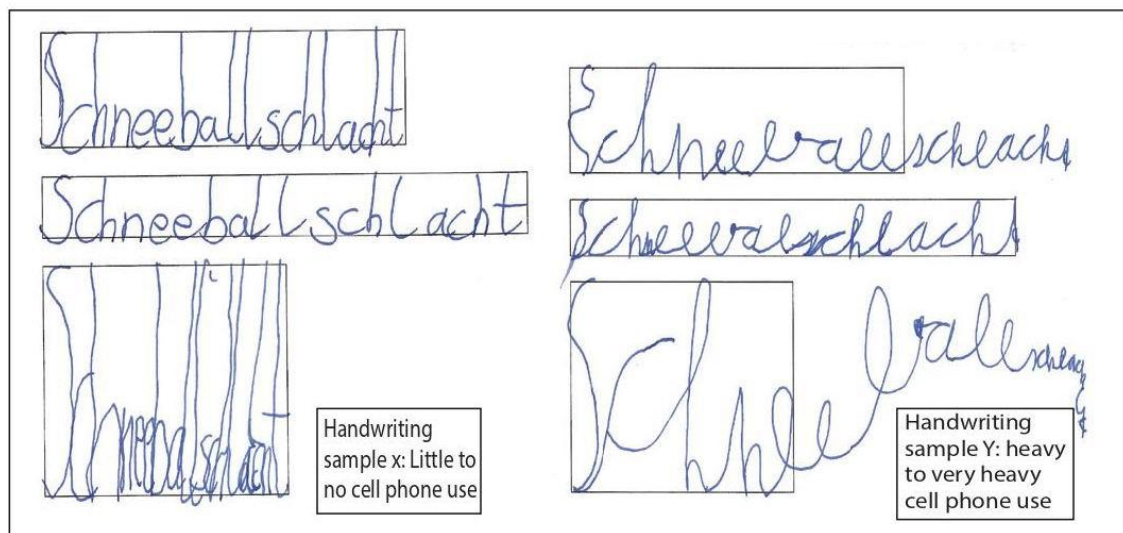 Schneeballschlacht
Schneeballschlacht
Schneeballschlacht
Handwriting
sample x: Little to
no cell phone use
Schneeballschlacht
Handwriting
sample Y: heavy
to very heavy
cell phone use